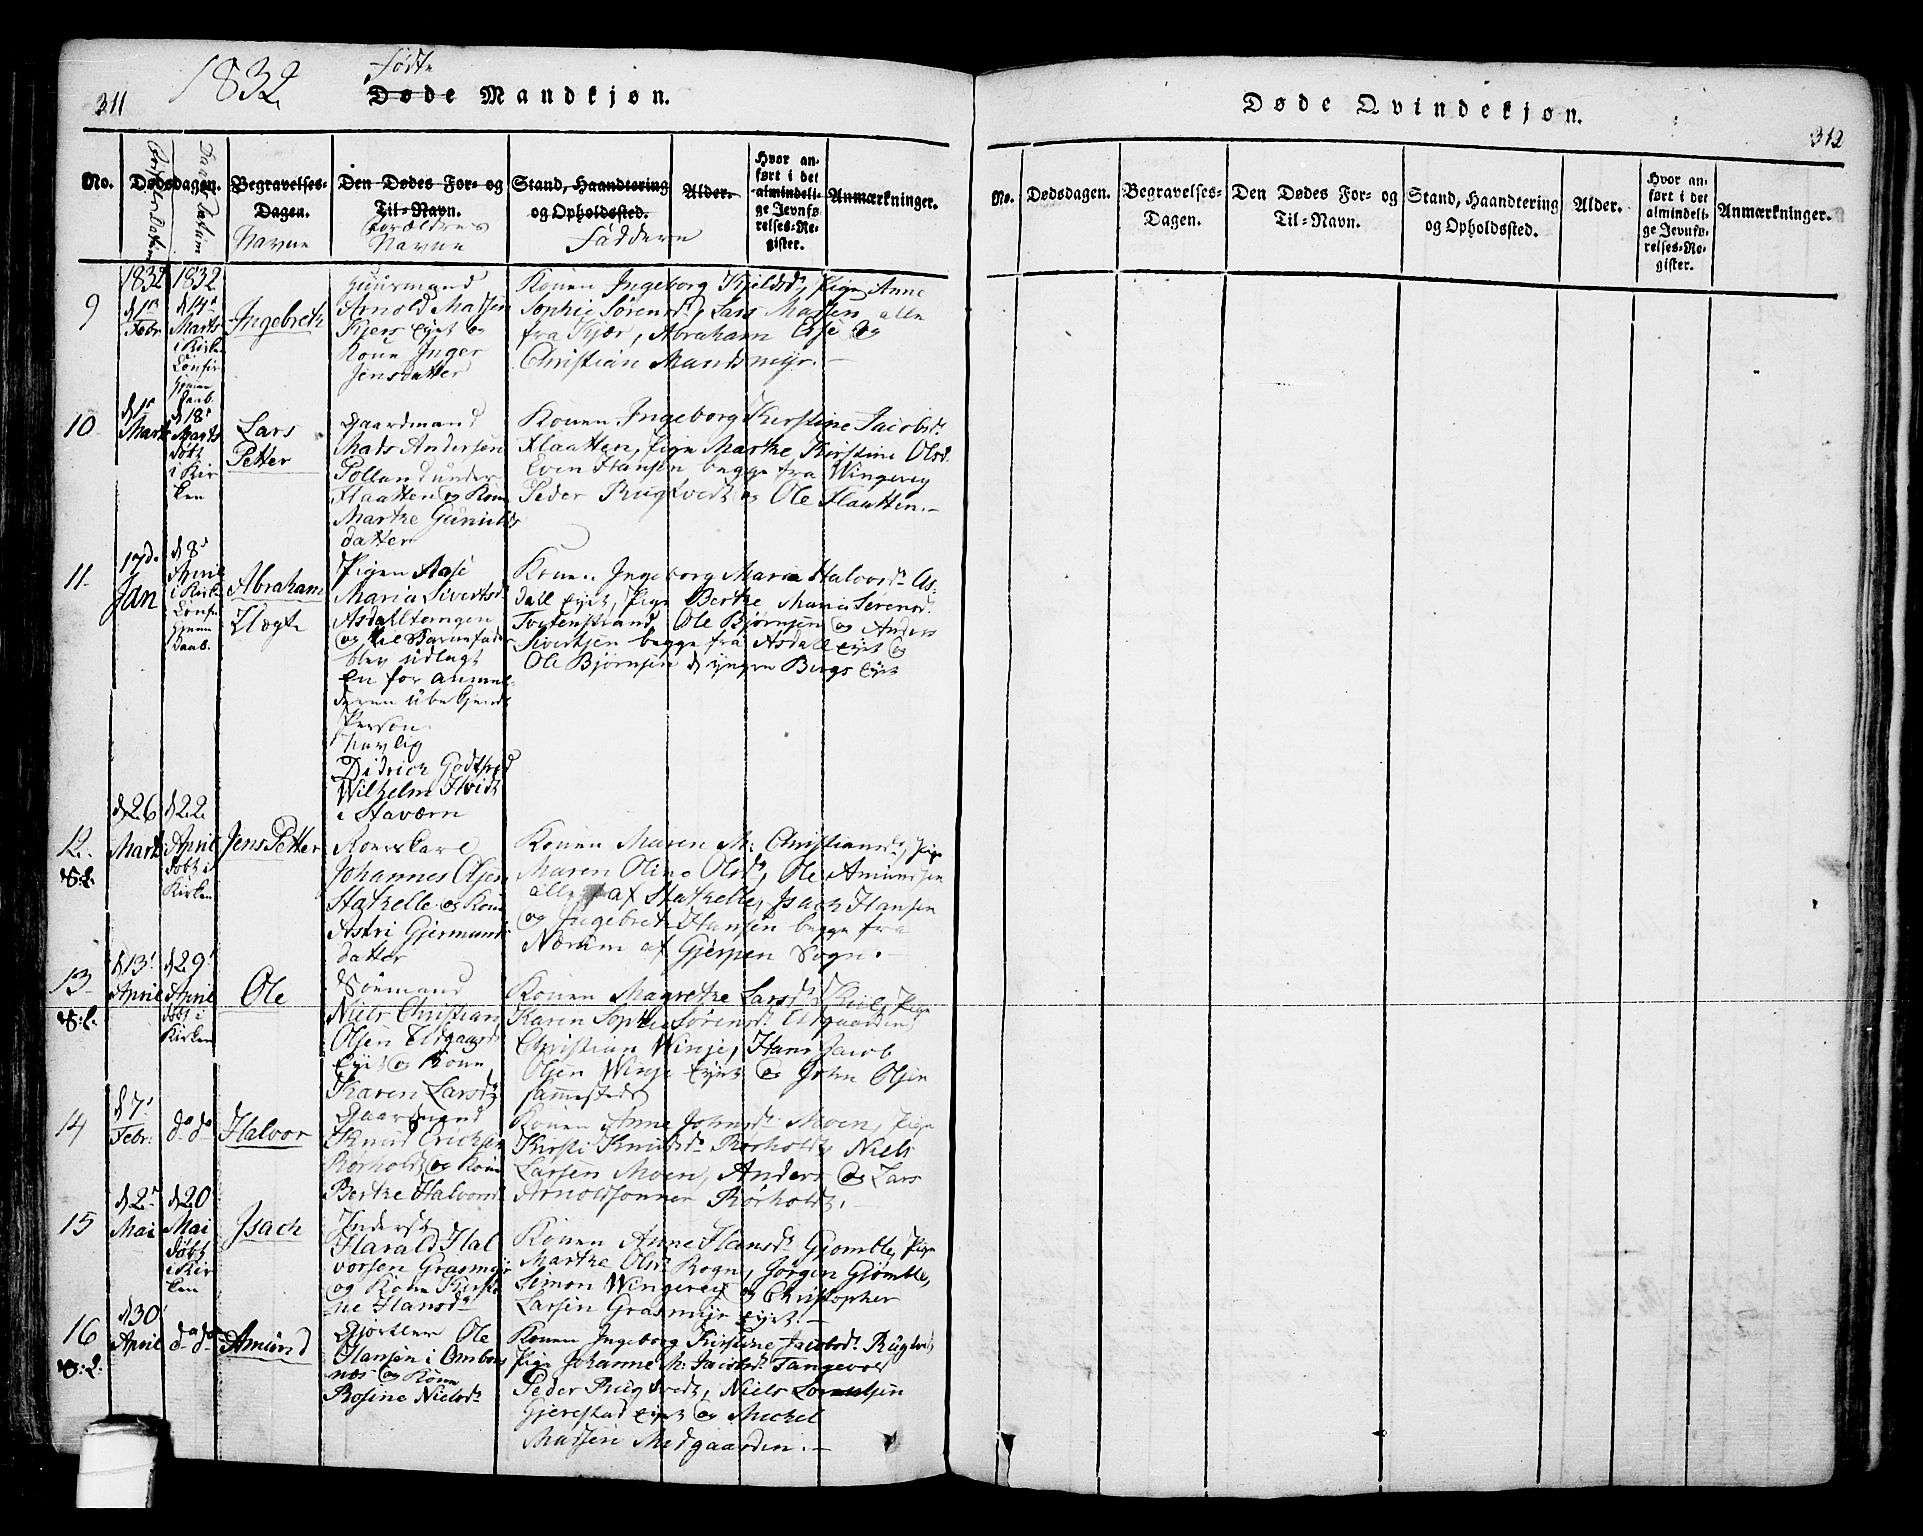 311
1832
Fødte
Døde Mandkjøn.
No.
Dødsdagen.
Daabs Datum
Begravelses-
Dagen.
Navne
Den Dødes For- og
Til-Navn.
Forældres
Navne
Stand, Haandtering
og Opholdssted.
Faddere
Alder.
Hvor an-
ført i det
almindeli-
ge Jevnfø-
relses-Re-
gister.
Anmærkninger.
9
1832
Febr.
1832
d 14
Marts
i Kirken
Ingebreth
Guurmand
Arnold Madsen
Kjers Eyet og
Kone Inger
Jensdatter
Konen Ingeborg Kjeldsd, Pigen Anne
Sophie Sørensd, Lars Madsen alle
fra Kjær, Abraham Eje og
Christian Mandsmyr.
10
d 1
Marts
d 18
Marts
døbt
i Kir
ken
Lars
Petter
Gaardmand
Mads Andersen
Polland under
Flaatten og Kone
Marthe Gunild
datter
Konen Ingeborg Kirstine Jacobsd
Flaatten, Pigen Marthe Kirstine Olsd
Even Hansen begge fra Wingerej
Peder Rugtvedt og Ole Flaatten.
11.
17d.
Jan
d 8
April
i Kirke
Daab.
Abraham
Pigen Aase
Maria Sivertsd
Asdaltangen
og til Barnefader
blev udlagt
en for anmel
deren ubekjendt
Person
navlig
Didrich Godtfred
Wilhelm Hvidt
i Staværn
Konen Ingeborg Maria Halvorsd As-
dall Eyet, Pige Berthe Maria Sørensd
Tvetenstrand, Ole Bjørnsen og Anders
Sivertsen begge fra Asdall Eyet og
Ole Bjørnsen d yngre Bergs Eyet
12.
S.l.
d 26
Marts
d 22
April
døbt i
Kirken
Jens Petter
Roerskarl
Johannes Olsen
Stathelle og Kone
Astri Gjermunds
datter
Konen Maren M: Christiansd, Pige
Maren Oline Olsd, Ole Amundsen
alle af Stathelle, Isach Hansen
og Ingebret Hansen begge fra
Nærum af Gjerpen Sogn.
13
S.l.
d 13
April
d 29
April
døbt i
Kirken
Ole
Søemand
Niels Christian
Olsen Eidgaards
Eyet og Kone
Karen Larsd
Konen Magrethe Larsd Kiil, Pige
Karen Sophie Sørensd Eidgaarden
Christian Winje, Hans Jacob
Olsen Winje Eyet og John Olsen
sammesteds
14
d 7
Febr.
do do
Halvor
Gaardmand
Knud Erichsen
Rørholdt og Kone
Berthe Halvorsd
Konen Anne Johnsd Moen, Pige
Kirsti Knudsd Rørholdt, Niels
Larsen Moen, Anders og Lars
Arnoldsønner Rørholdt.
15
d 2
Mai
d 20
Mai
døbt
i Kir
ken
Isach
Inderst
Harald Hal
vorsen Grasmyr
og Kone Kirsti
ne Hansd
Konen Anne Hansd Gjømble, Pige
Marthe Olsd Rogn, Jørgen Gjømble,
Simon Wingerej og Christopher
Larsen Grasmyr Eyet.
16
S.l.
d 30
April
do do
Amund
Gjørtler Ole
Hansen i Ombors
næs og Kone
Rosine Nielsd
Konen Ingeborg Kirstine Jacobsd Rugtvedt,
Pige Johanne M. Jacobsd Tangevold
Peder Rugtvedt, Niels Lorentsen
Gjerestad Eyet og Michel
Madsen Midgaarden.
Døde Qvindekjøn.
312
No.
Dødsdagen.
Begravelses-
Dagen.
Den Dødes For- og
Til-Navn.
Stand, Haandtering
og Opholdssted.
Alder.
Hvor an-
ført i det
almindeli-
ge Jevnfø-
relses-Re-
gister.
Anmærkninger.